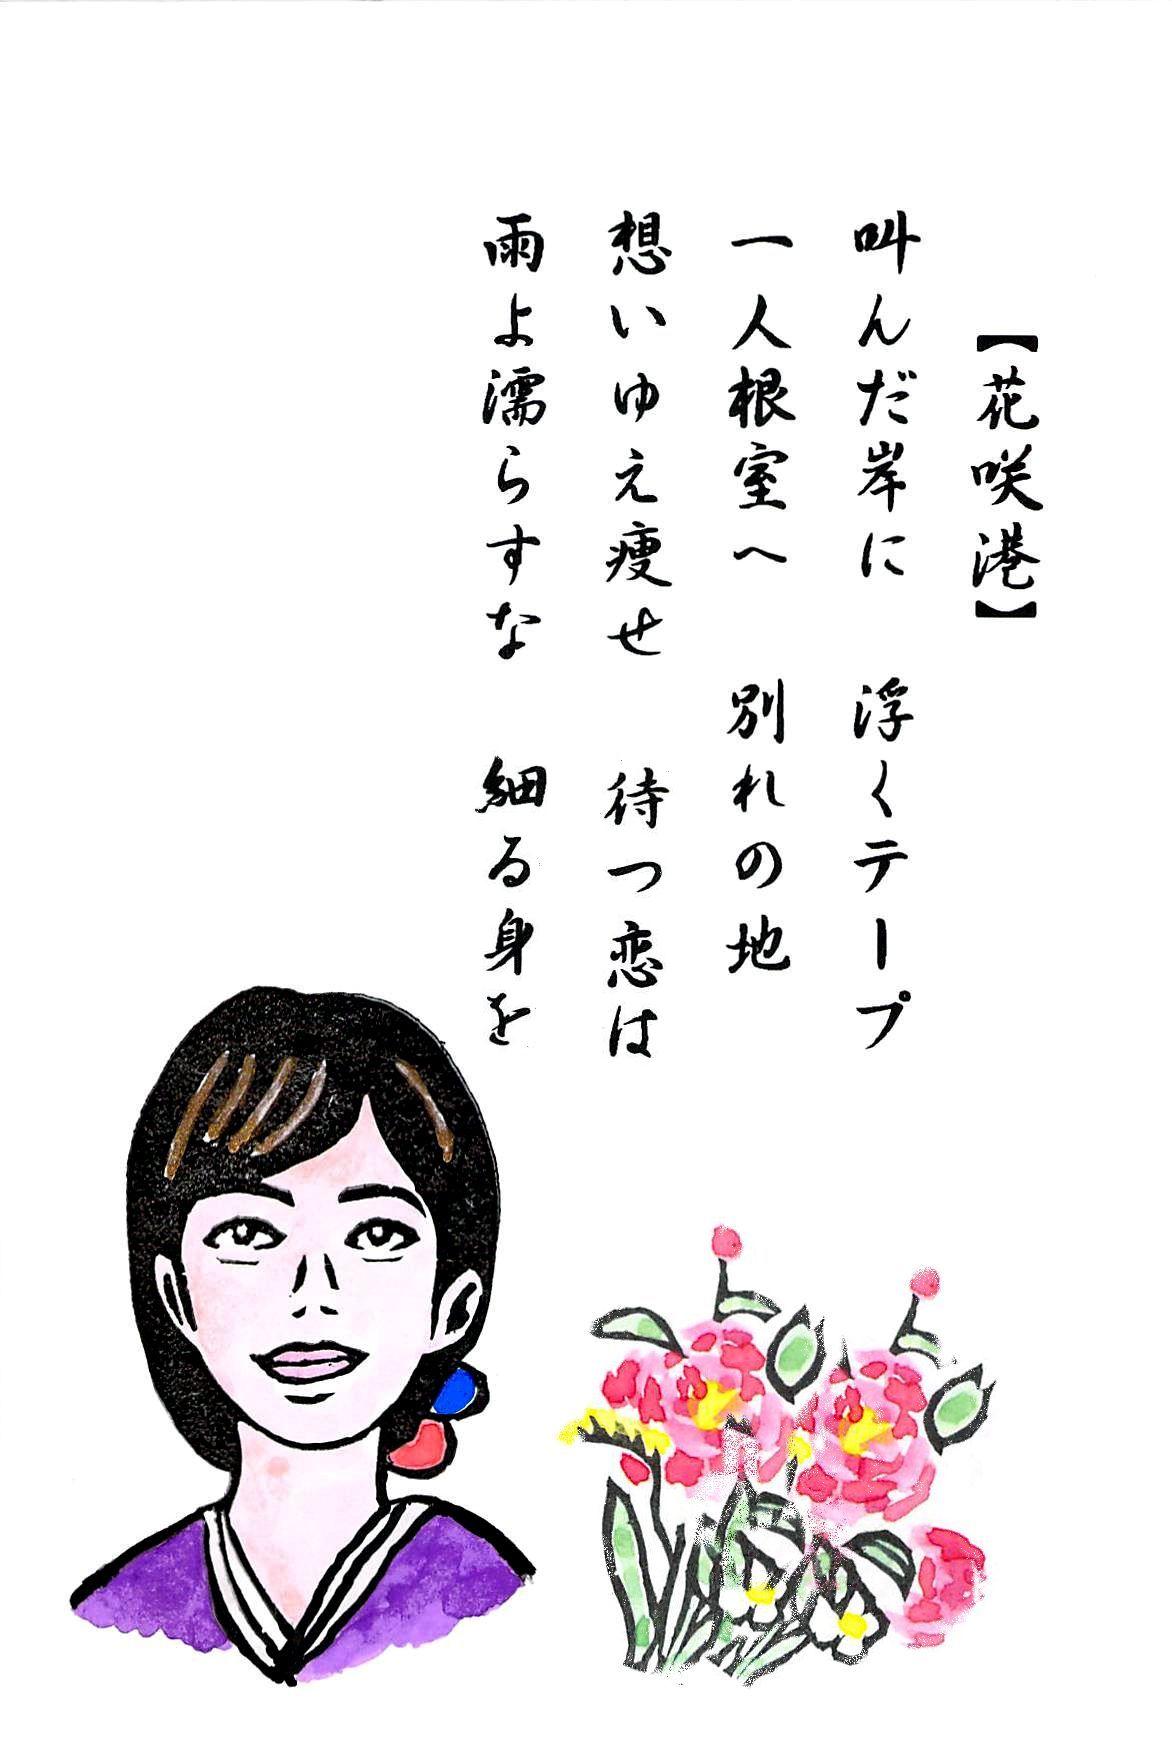 【花咲港】
叫んだ岸に　浮くテープ
一人根室へ　別れの地
想いゆえ痩せ　待つ恋は
雨よ濡らすな　細る身を